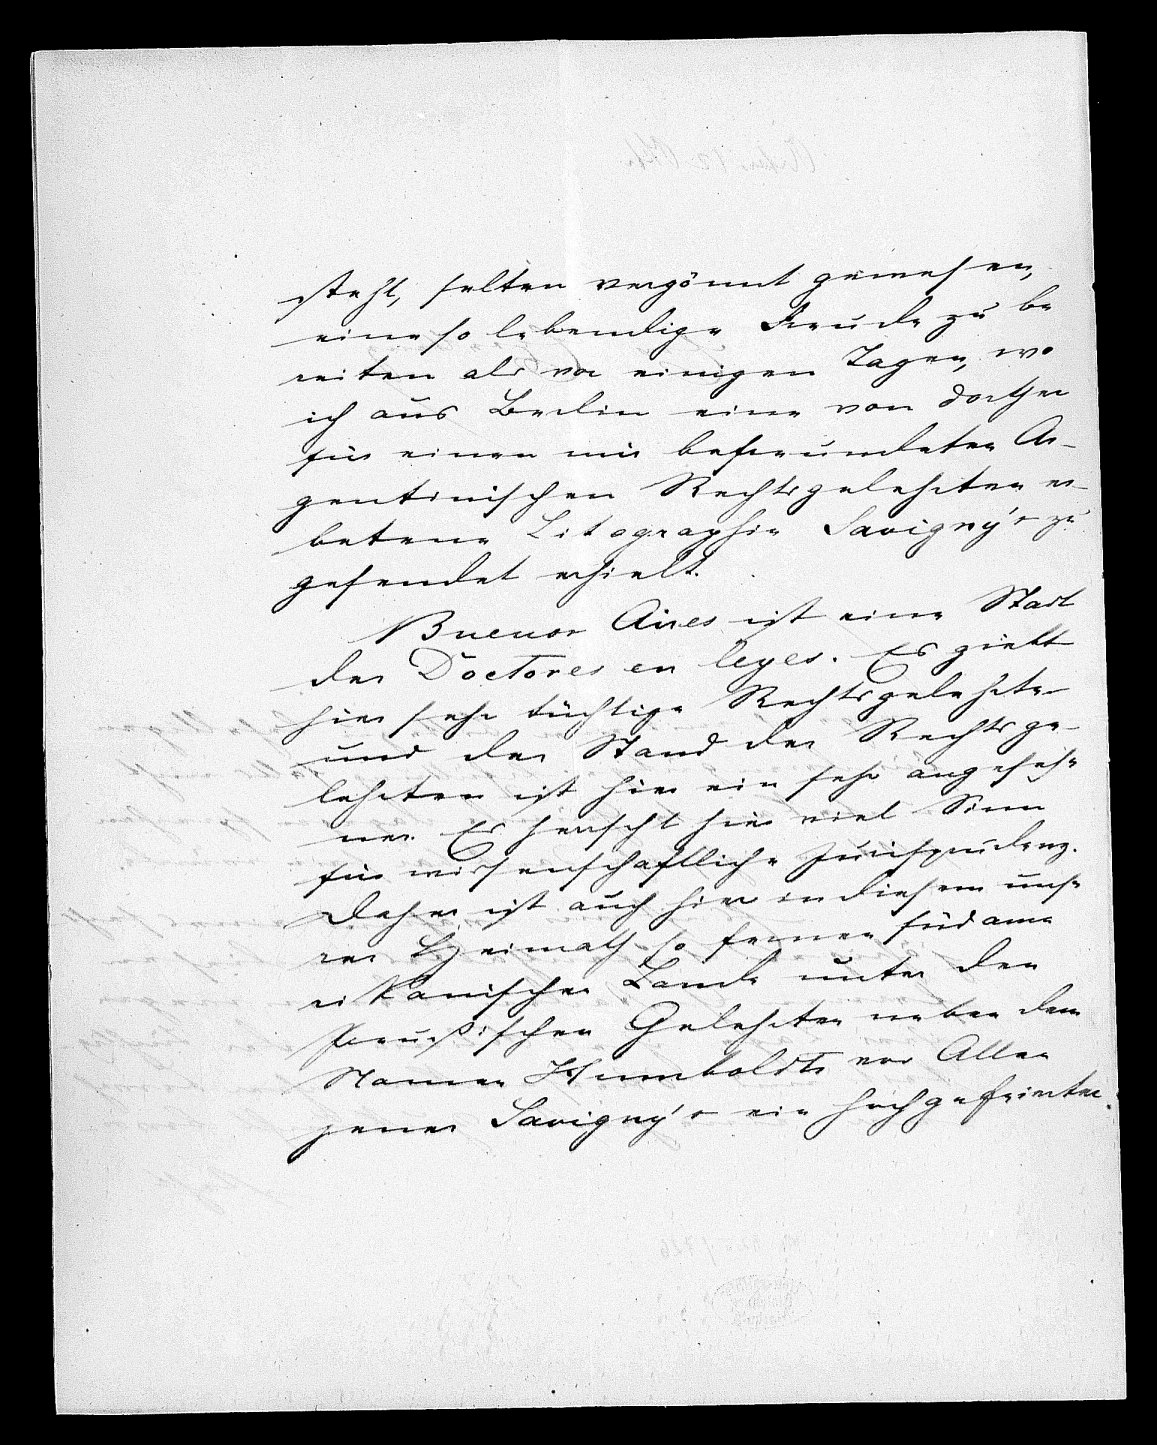 steht, selten vergönnt gewesen,
eine so lebendige Freude zu be
reiten als vor einigen Tagen, wo
ich aus Berlin eine von dorther
für einen mir befreundeten Ar-
gentinischen Rechtsgelehrten er-
betene Litographie Savigny's zu
gesendet erhielt.
Buenos Aires ist eine Stadt
der Doctores en leyes. Es giebt
hier sehr tüchtige Rechtsgelehrte
und der Stand der Rechtsge-
lehrten ist hier ein sehr angesehe
ner. Es herrscht hier viel Sinn
für wissenschaftliche Jurisprudenz.
Daher ist auch hier in diesem unse
rer Heimath so fernen südame
rikanischen Lande unter den
Preußischen Gelehrten neben dem
Namen Humboldts vor Allen
jener Savigny's ein hochgefeierter.